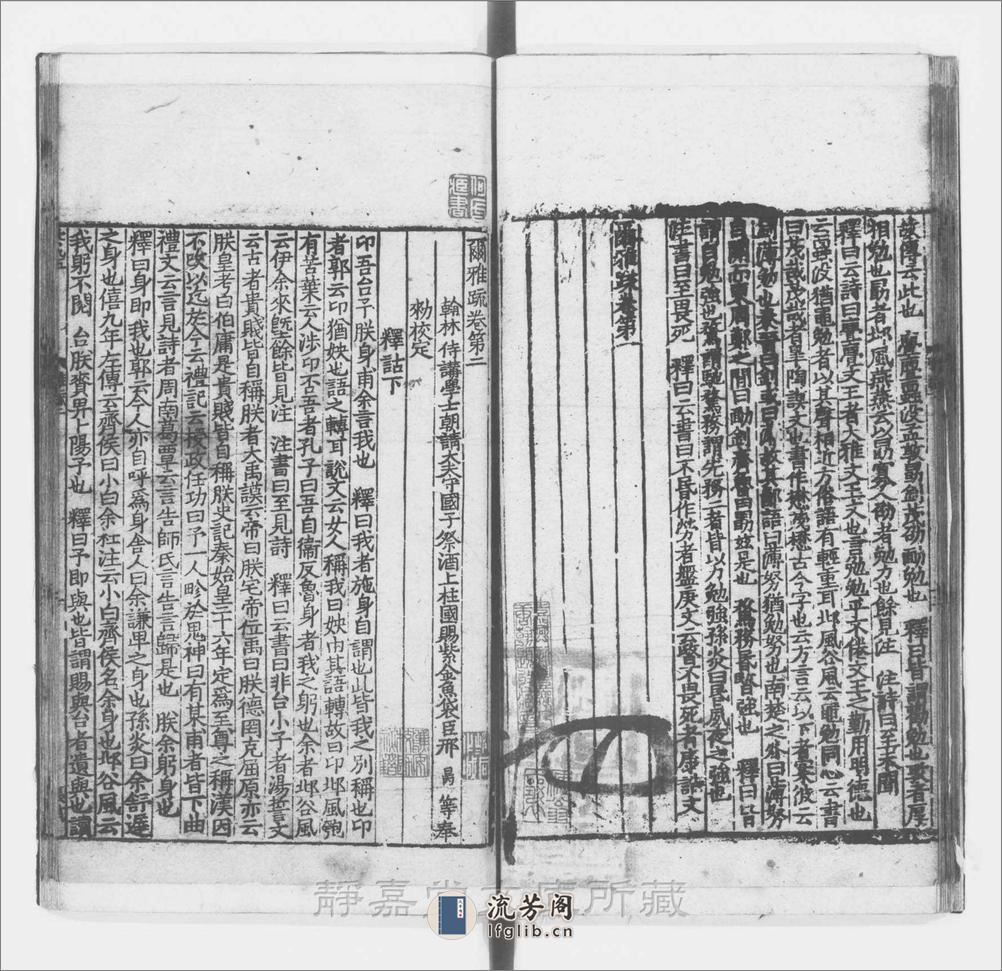 故傳云此也 亹亹蠠没孟敦勗釗茂劭勔勉也 釋曰皆謂勸勉也敦者厚
相勉也勗者邶風燕燕云以勗寡人劭者勉力也餘見注 注詩曰至未聞
釋曰云詩曰亹亹文王者大雅文王文也言勉勉乎不倦文王之勤用明德也
云蠠没猶黽勉者以其聲相近方俗語有輕重耳邶風谷風云黽勉同心云書
曰茂哉茂哉者皋陶謨文也書作懋茂懋古今字也云方言云以下者案彼云
釗薄勉也秦晉曰釗或曰薄故其鄙語曰薄努猶勉努也南楚之外曰薄努
自關而東周鄭之間曰勔釗齊魯曰勗兹是也 騖務昏暋強也 釋曰皆
謂自勉強也騖謂馳騖務謂先務二者皆以力勉強孫炎曰昏夙夜之強也
注書曰至畏死 釋曰云書曰不昏作勞者盤庚文云暋不畏死者康誥文
爾雅疏卷第一
爾雅疏卷第二
翰林侍講學士朝請大夫守國子祭酒上柱國賜紫金魚袋臣邢 昺 等奉
勑校定
釋詁下
卬吾台予朕身甫余言我也 釋曰我者施身自謂也此皆我之别稱也卬
者郭云卬猶姎也語之轉耳說文云女人稱我曰姎由其語轉故曰卬邶風匏
有苦葉云人涉卬否吾者孔子曰吾自衞反魯身者我之躬也余者邶谷風
云伊余來墍餘皆見注 注書曰至見詩 釋曰云書曰非台小子者湯誓文
云古者貴賤皆自稱朕者大禹謨云帝曰朕宅帝位禹曰朕德罔克屈原亦云
朕皇考曰伯庸是貴賤皆自稱朕史記秦始皇二十六年定爲至尊之稱漢因
不改以迄於今云禮記云授政任功曰予一人畛於鬼神曰有某甫者皆下曲
禮文云言見詩者周南葛覃云言告師氏言告言歸是也 朕余躬身也
釋曰身即我也郭云今人亦自呼爲身舍人曰余謙卑之身也孫炎曰余舒遲
之身也僖九年左傳云齊侯曰小白余杜注云小白齊侯名余身也邶谷風云
我躬不閱 台朕賚畀卜陽予也 釋曰予即與也皆謂賜與台者遺與也讀
靜嘉堂文庫所藏
流芳阁
lfglib.cn